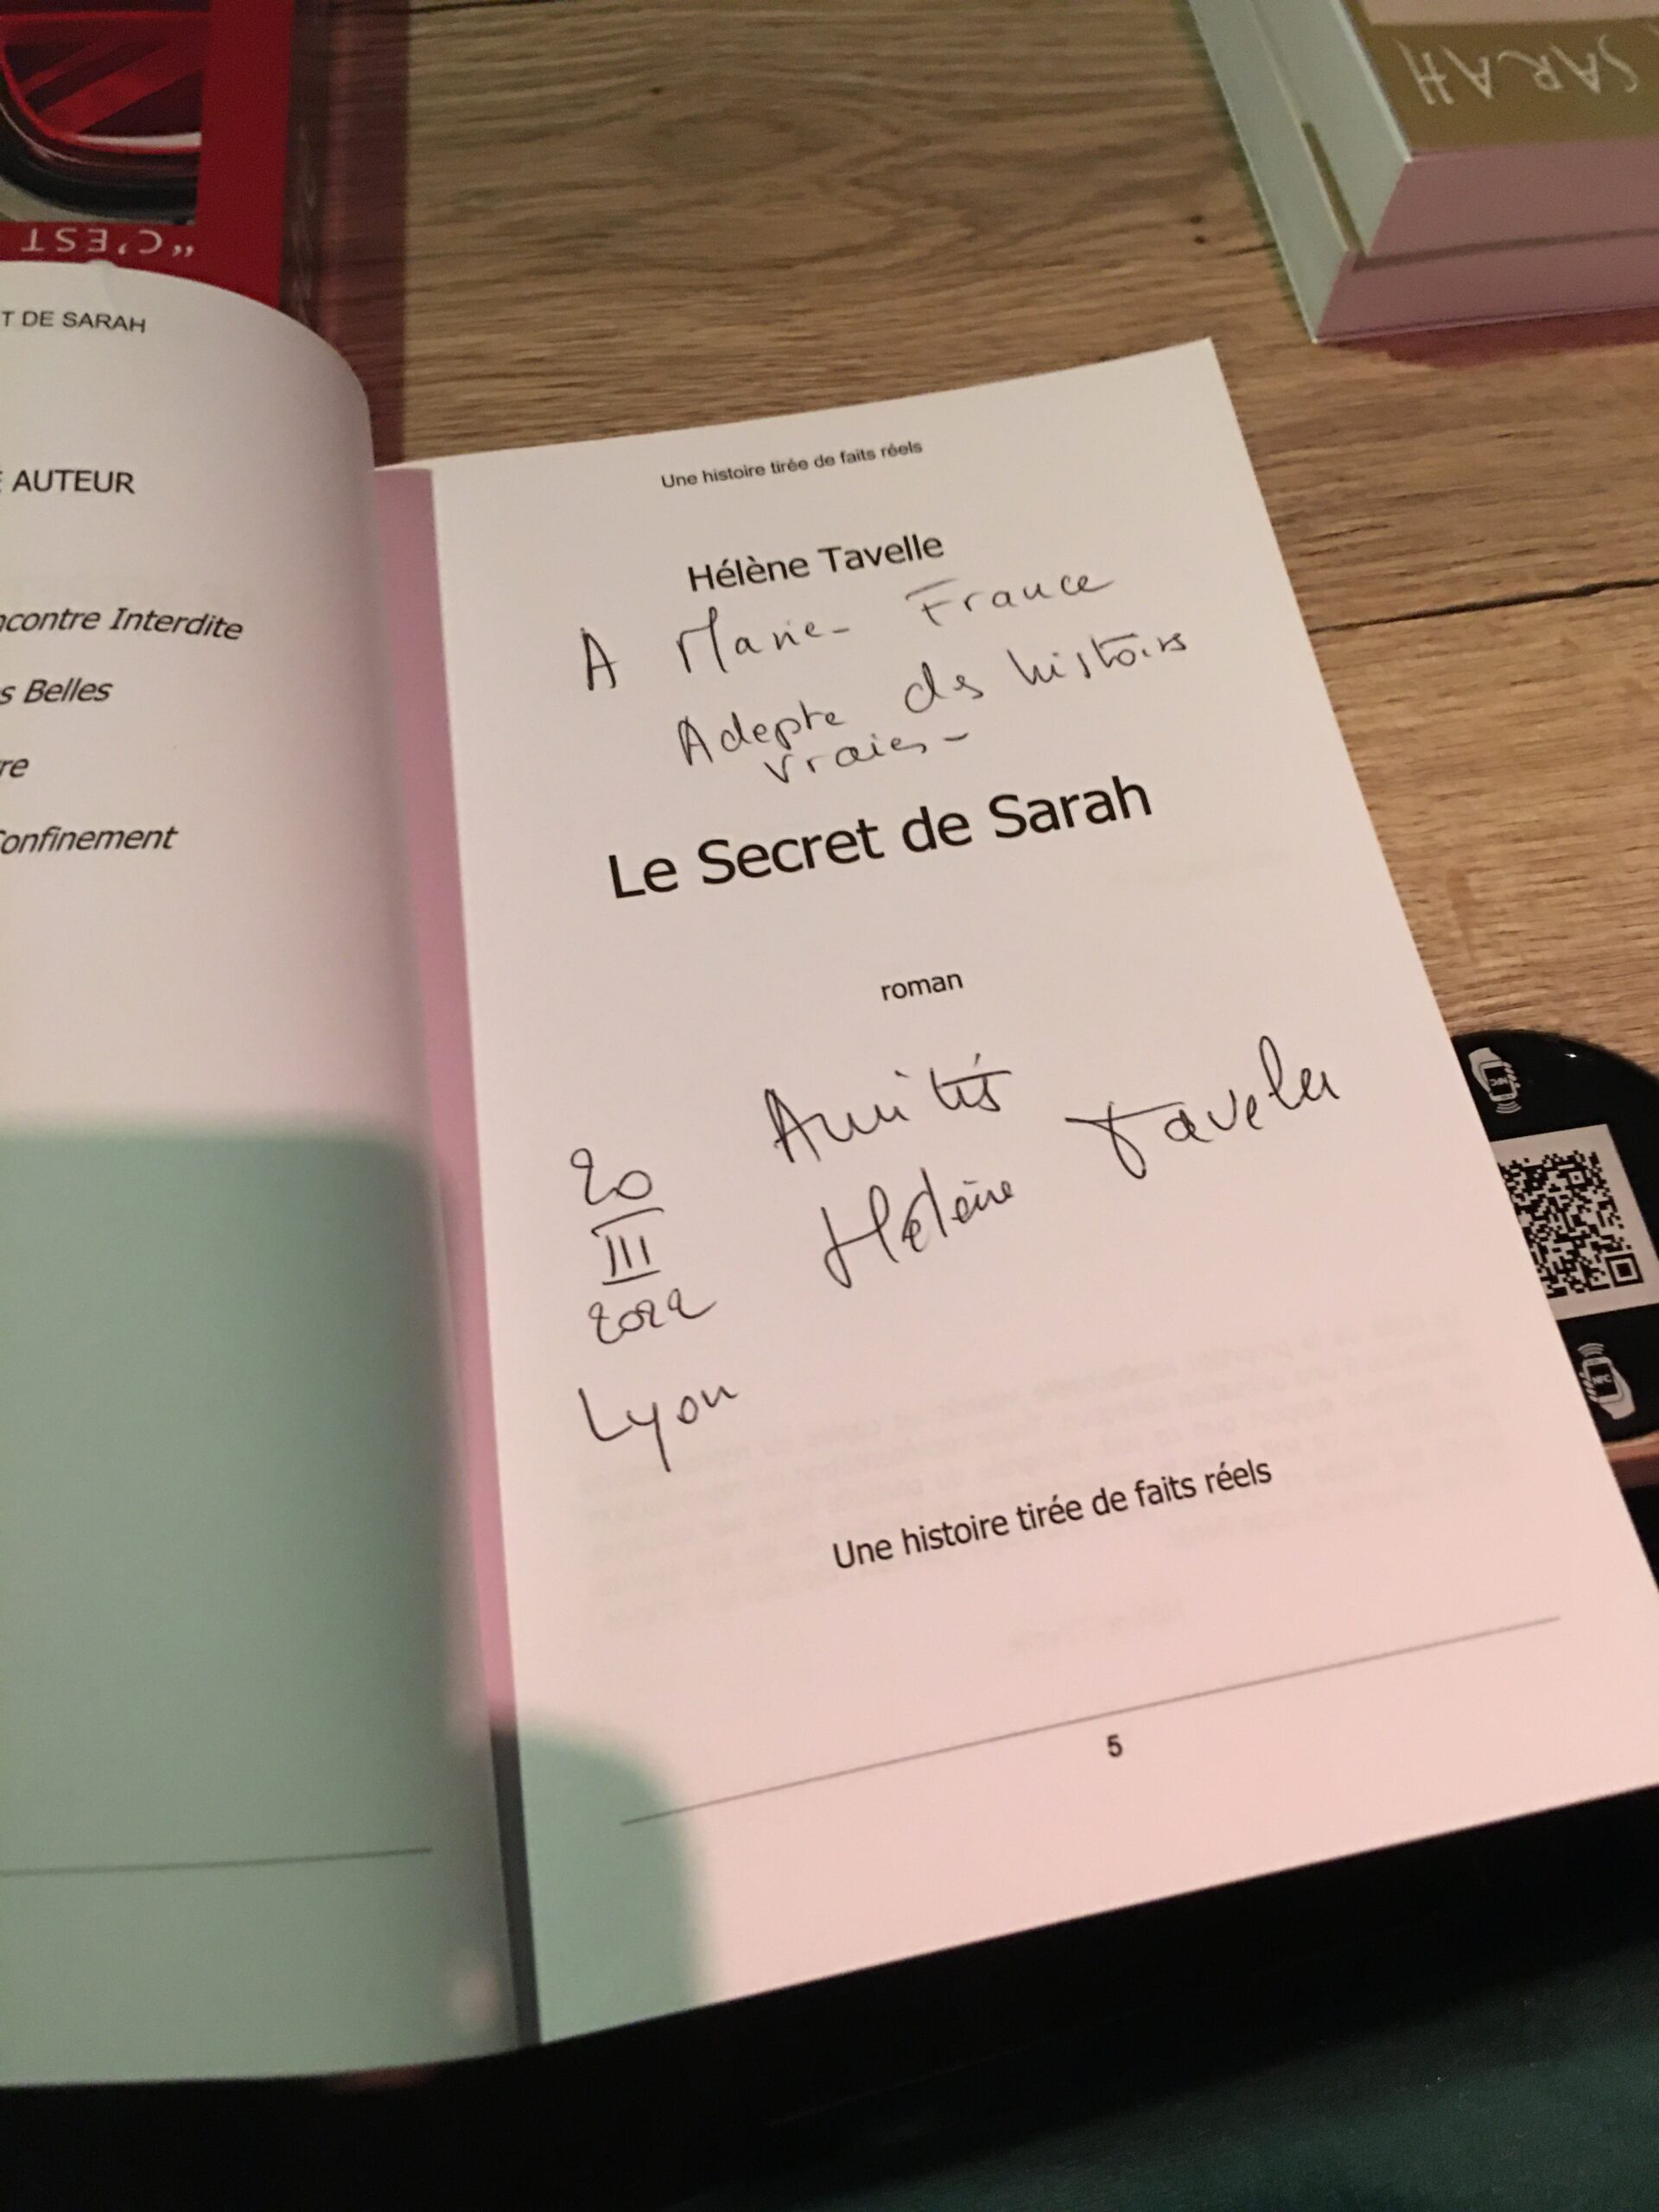 SARAH
"C'EST
T DE SARAH
AUTEUR
ncontre Interdite
s Belles
re
Confinement
Une histoire tirée de faits réels
Hélène Tavelle
A Marie-France
Adepte des histoires
vraies-
Le Secret de Sarah
roman
Amitiés
Hélène Tavelle
20
III
2022
Lyon
Une histoire tirée de faits réels
5
NFC